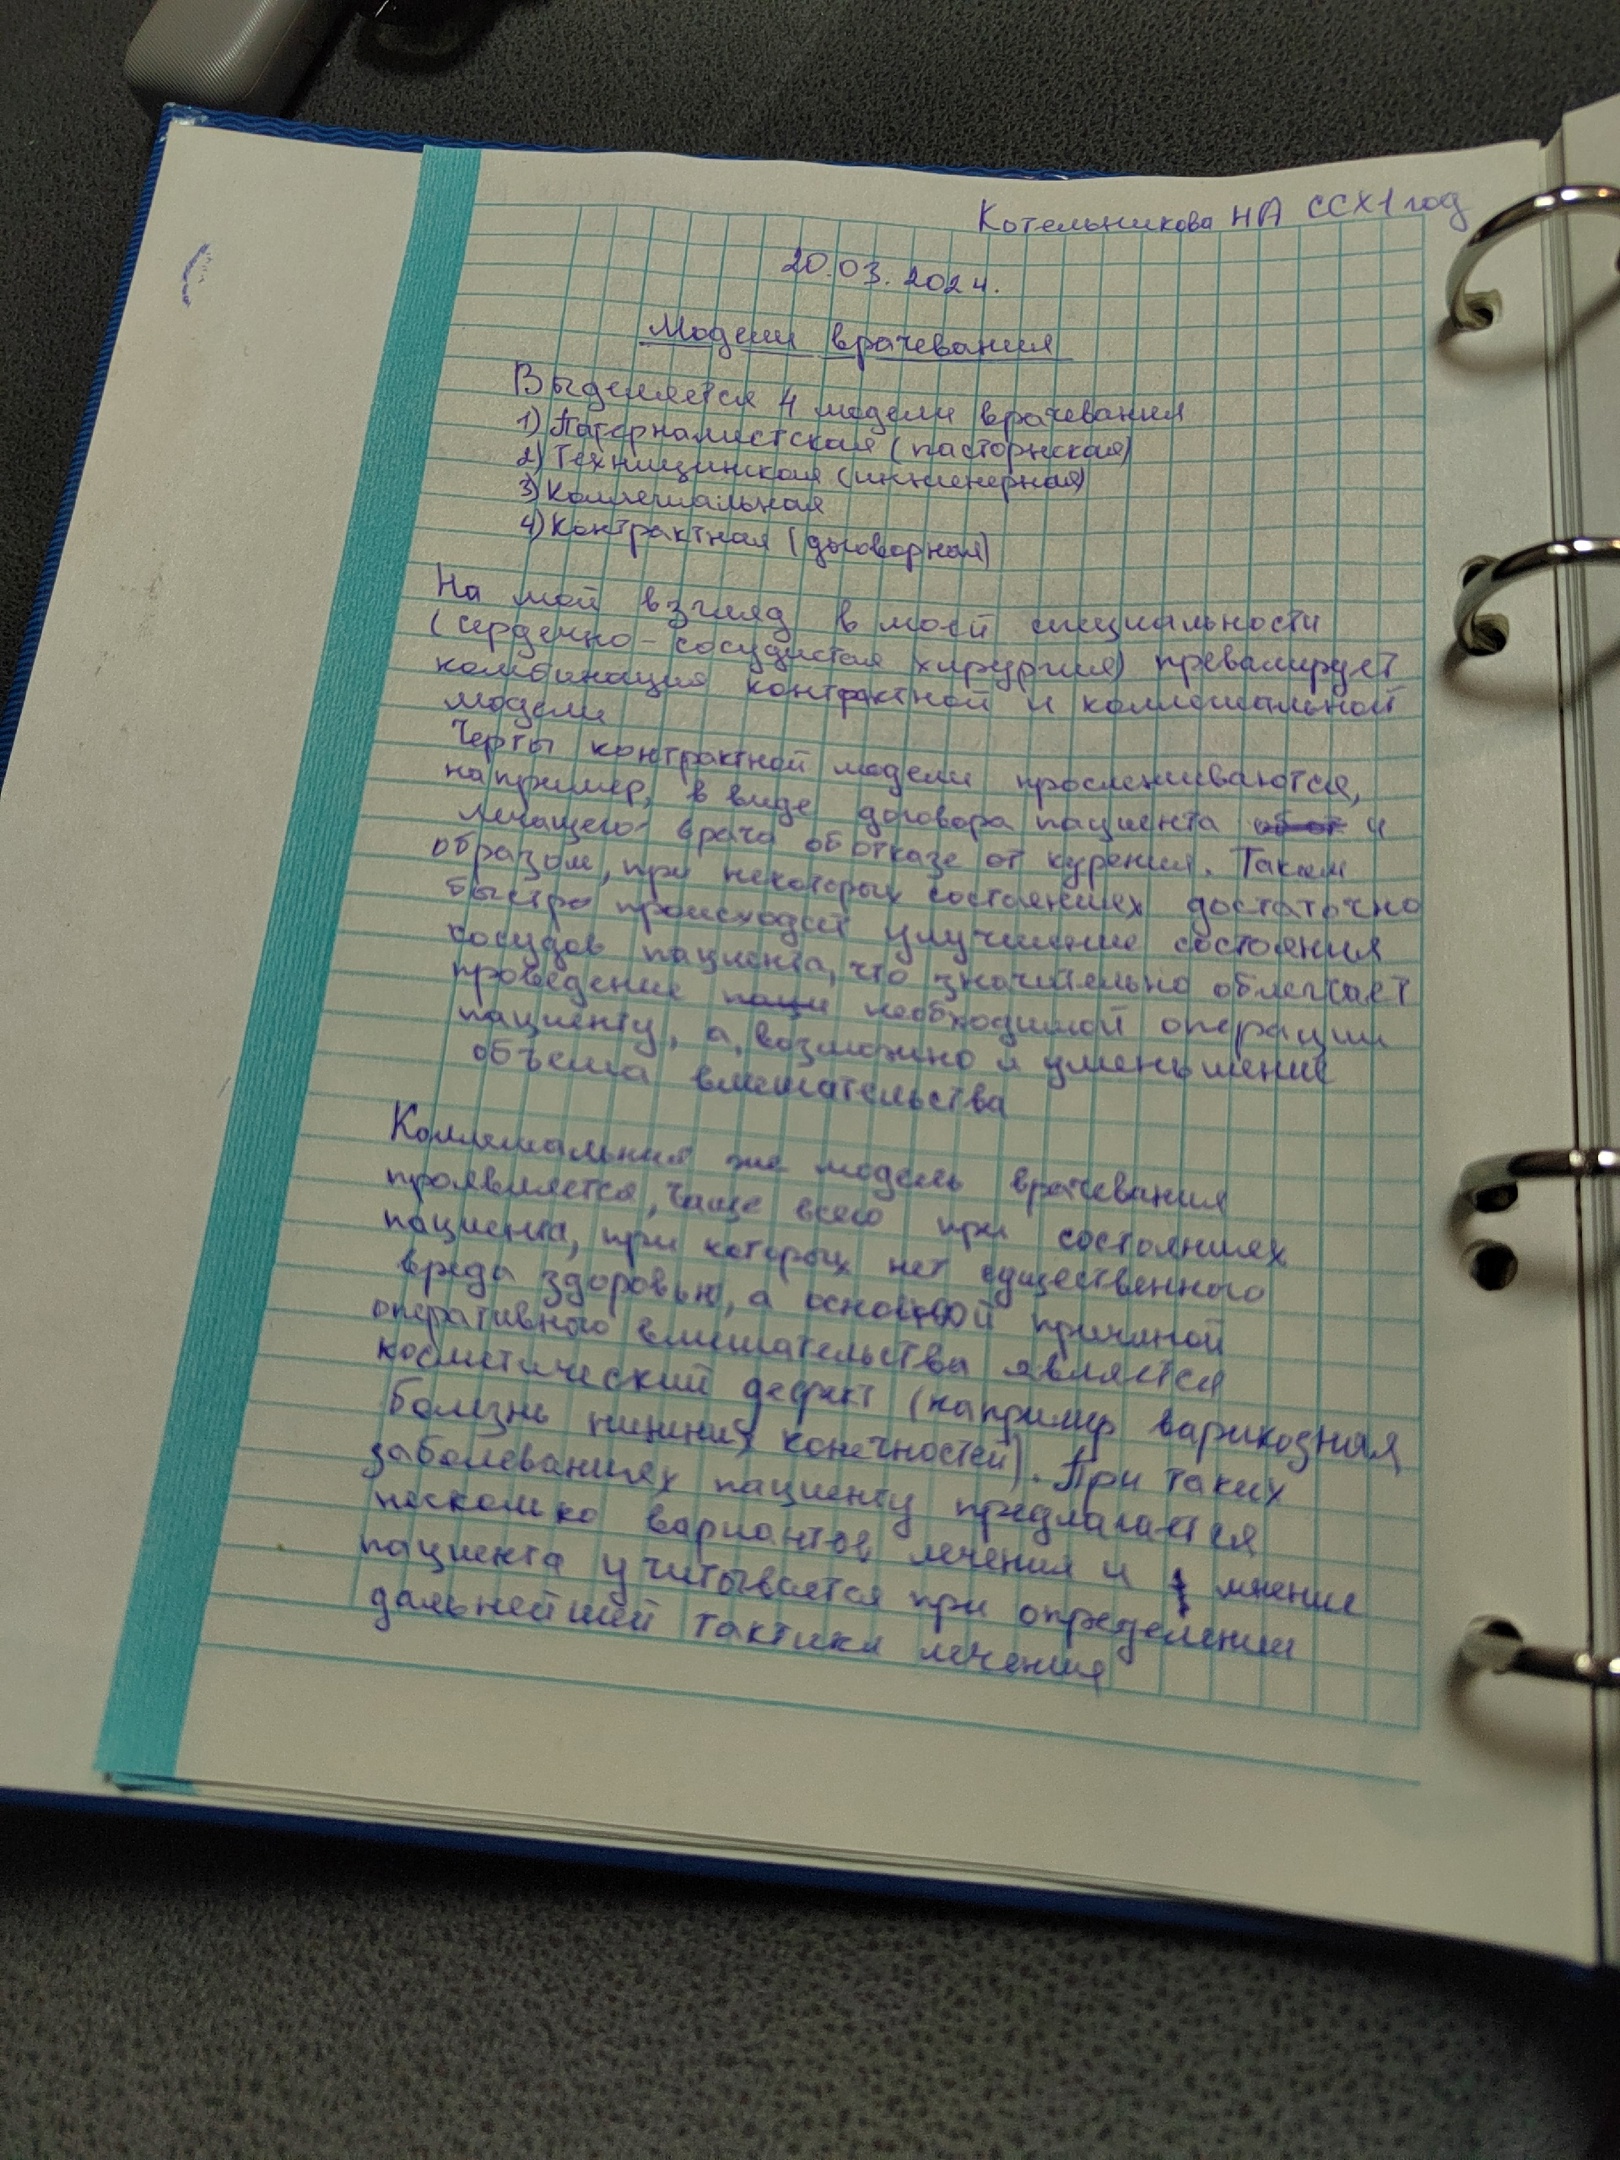 Котельникова НА ССХ 1 год
20.03.2024.
Модели врачевания
Выделяется 4 модели врачевания
1) Патерналистская (пасторнская)
2) Техницинская (инженерная)
3) Коллегиальная
4) Контрактная (договорная)
На мой взгляд в моей специальности
(сердечно-сосудистая хирургия) превалирует
комбинация контрактной и коллегиальной
модели
Черты контрактной модели прослеживаются,
например, в виде договора пациента и
лечащего врача об отказе от курения. Таким
образом, при некоторых состояниях достаточно
быстро происходит улучшение состояния
сосудов пациента, что значительно облегчает
проведение необходимой операции
пациенту, а, возможно и уменьшение
объема вмешательства
Коллегиальная же модель врачевания
проявляется, чаще всего при состояниях
пациента, при которых нет существенного
вреда здоровью, а основной причиной
оперативного вмешательства является
косметический дефект (например варикозная
болезнь нижних конечностей). При таких
заболеваниях пациенту предлагается
несколько вариантов лечения и мнение
пациента учитывается при определении
дальнейшей тактики лечения